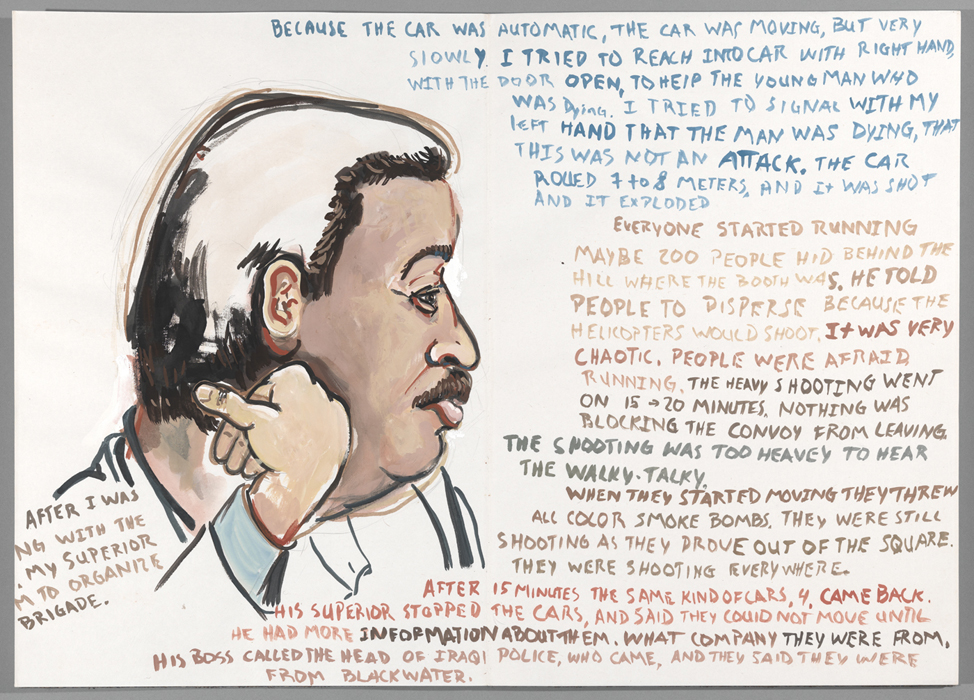 BECAUSE THE CAR WAS AUTOMATIC, THE CAR WAS MOVING, BUT VERY
SLOWLY. I TRIED TO REACH INTO CAR WITH RIGHT HAND,
WITH THE DOOR OPEN, TO HELP THE YOUNG MAN WHO
WAS Dying. I TRIED TO SIGNAL WITH MY
LEFT HAND THAT THE MAN WAS DYING, THAT
THIS WAS NOT AN ATTACK. THE CAR
ROLLED 7 to 8 METERS, AND It WAS SHOT
AND IT EXPLODED
EVERYONE STARTED RUNNING
MAYBE 200 PEOPLE HID BEHIND THE
HILL WHERE THE BOOTH WAS. HE TOLD
PEOPLE TO DISPERSE BECAUSE THE
HELICOPTERS WOULD SHOOT. It WAS VERY
CHAOTIC. PEOPLE WERE AFRAID
RUNNING. THE HEAVY SHOOTING WENT
ON 15 → 20 MINUTES. NOTHING WAS
BLOCKING THE CONVOY FROM LEAVING.
THE SHOOTING WAS TOO HEAVEY TO HEAR
THE WALKY-TALKY.
WHEN THEY STARTED MOVING THEY THREW
ALL COLOR SMOKE BOMBS. THEY WERE STILL
SHOOTING AS THEY DROVE OUT OF THE SQUARE.
THEY WERE SHOOTING EVERYWHERE.
AFTER 15 MINUTES THE SAME KIND OF CARS, 4, CAME BACK.
HIS SUPERIOR STOPPED THE CARS, AND SAID THEY COULD NOT MOVE UNTIL
HE HAD MORE INFORMATION ABOUT THEM. WHAT COMPANY THEY WERE FROM.
HIS BOSS CALLED THE HEAD OF IRAQI POLICE, WHO CAME, AND THEY SAID THEY WERE
FROM BLACKWATER.
AFTER I WAS
NG WITH THE
. MY SUPERIOR
M TO ORGANIZE
BRIGADE.